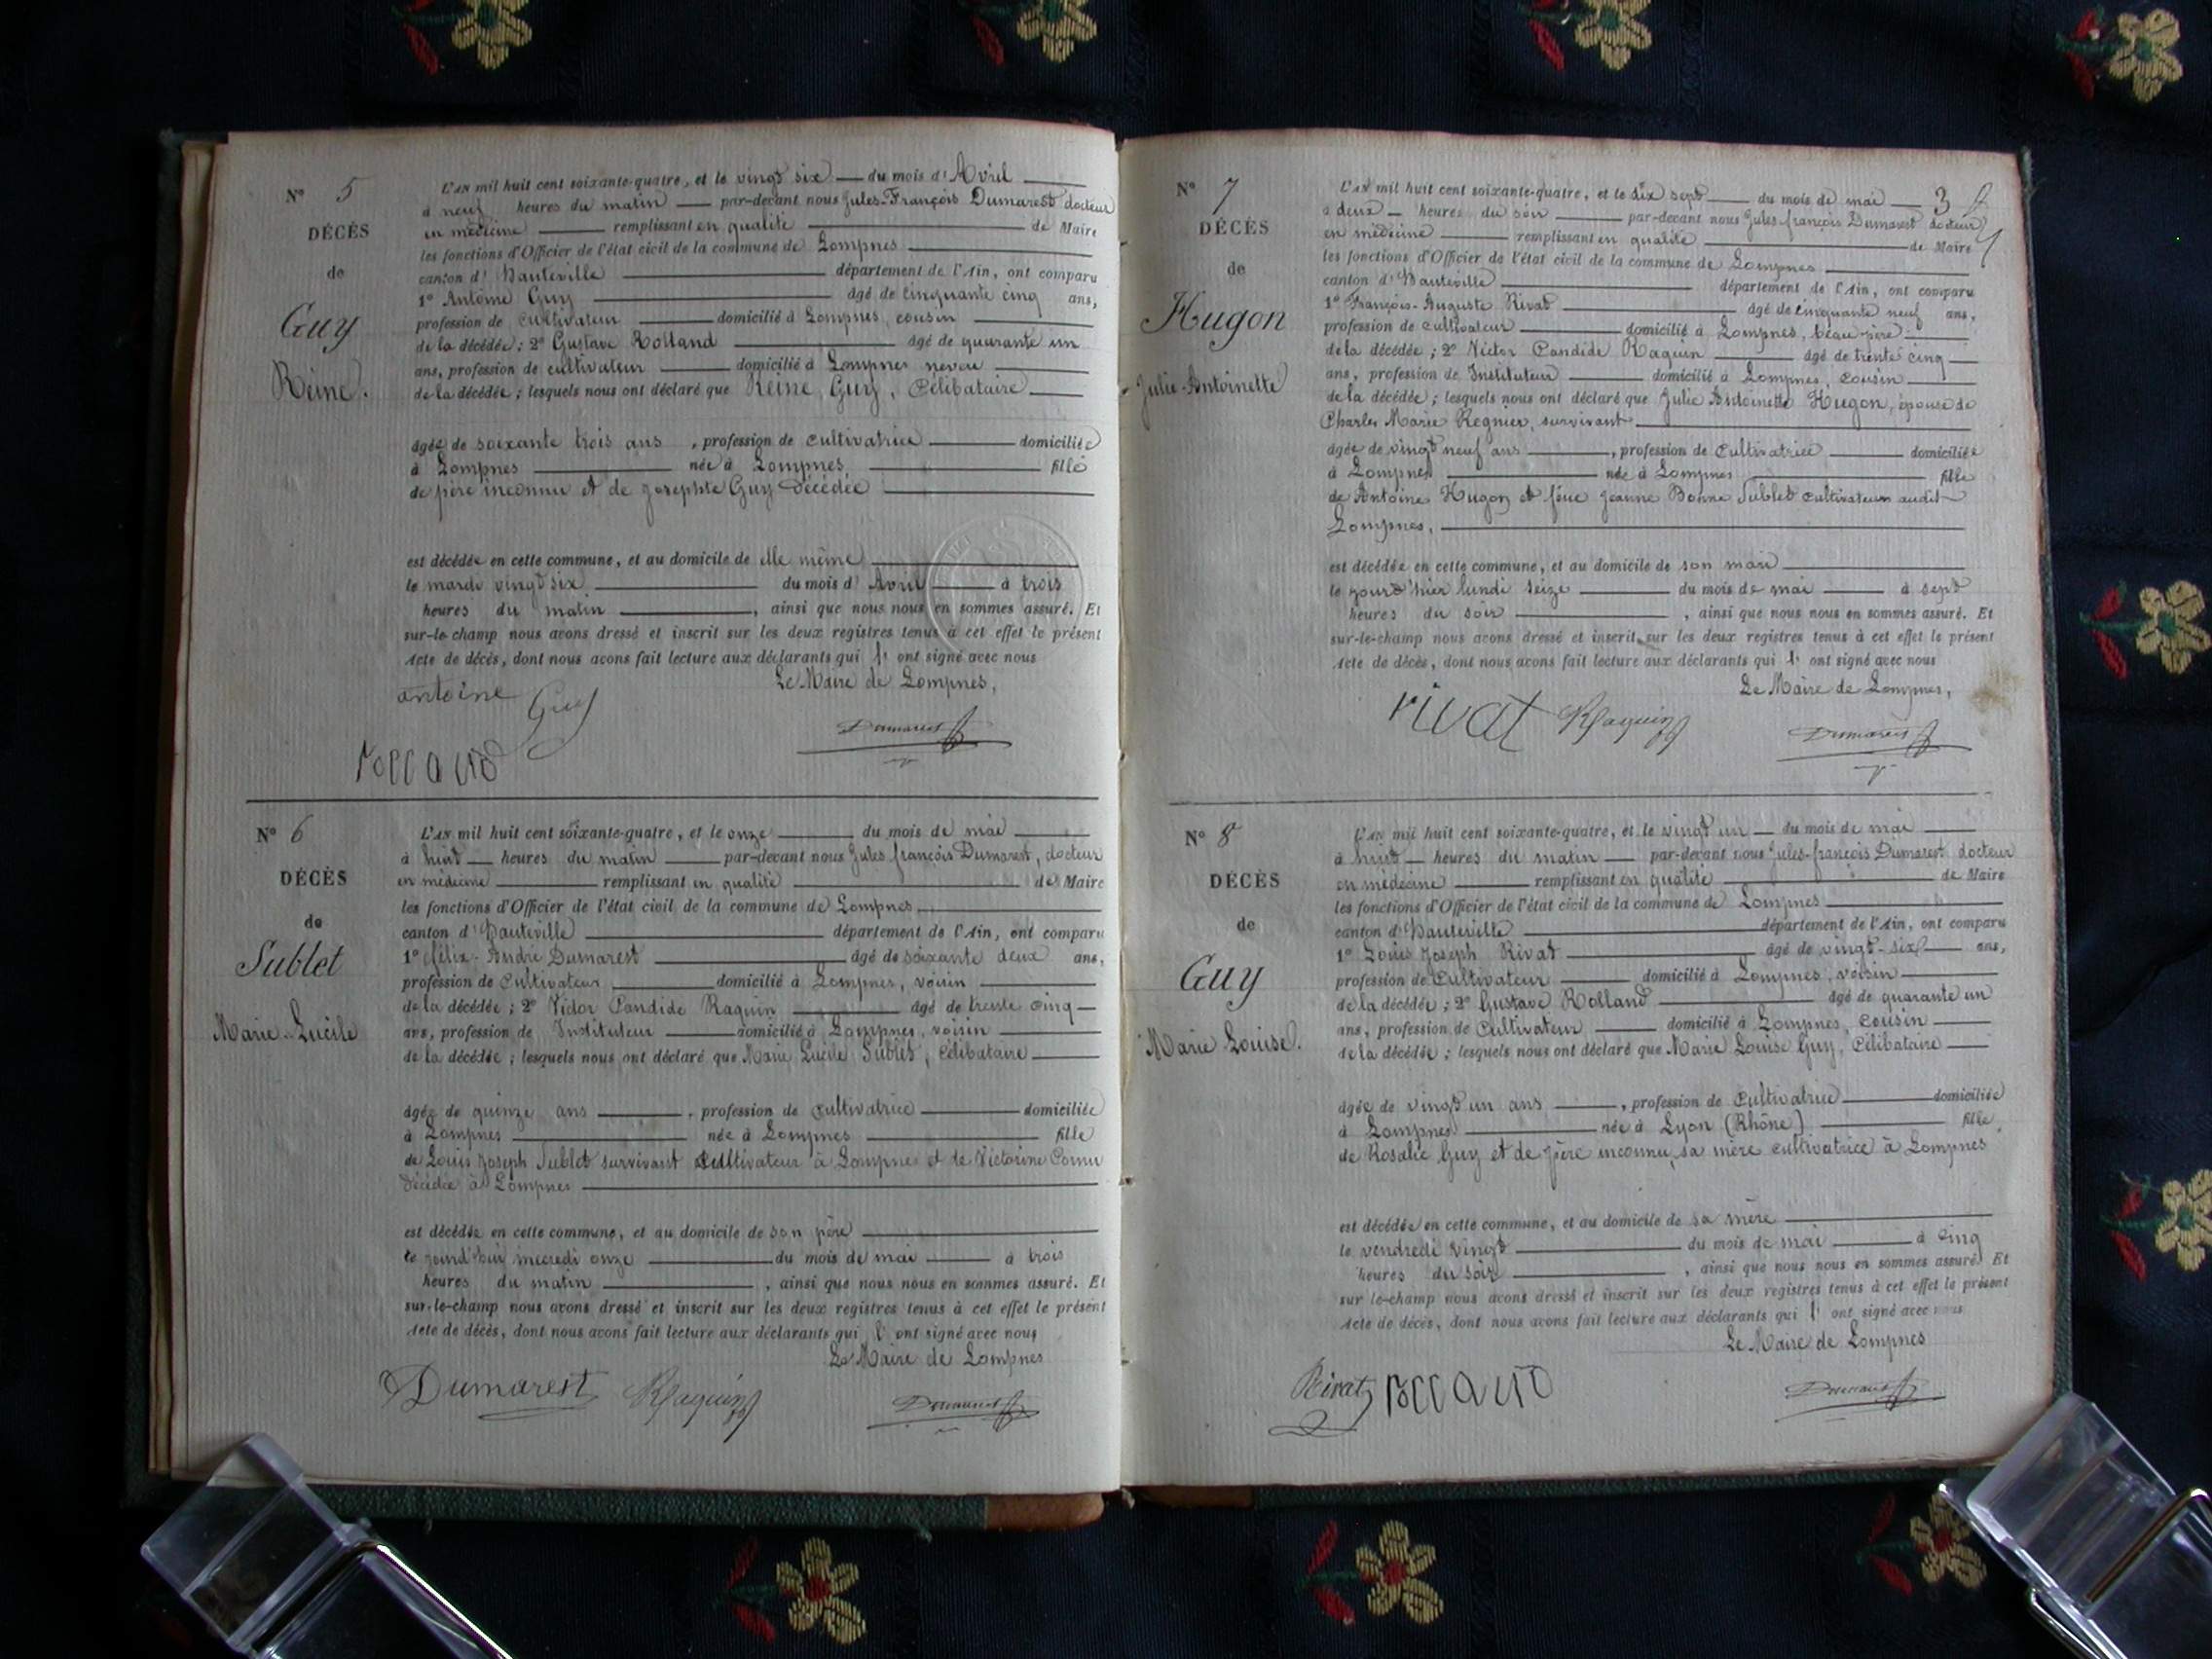 N° 5
DÉCÈS
de
Guy
Reine.
L'AN mil huit cent soixante-quatre, et le vingt six du mois d'Avril
à neuf heures du matin par-devant nous Jules-François Dumarest docteur
en médecine remplissant en qualité de Maire
les fonctions d'Officier de l'état civil de la commune de Lompnes
canton d'Hauteville département de l'Ain, ont comparu
1° Antoine Guy âgé de cinquante cinq ans,
profession de cultivateur domicilié à Lompnes, cousin
de la décédée ; 2° Gustave Rolland âgé de quarante un
ans, profession de cultivateur domicilié à Lompnes neveu
de la décédée ; lesquels nous ont déclaré que Reine Guy, Célibataire
âgée de soixante trois ans, profession de cultivatrice domiciliée
à Lompnes née à Lompnes fille
de père inconnu et de Josephte Guy Décédée
est décédée en cette commune, et au domicile de elle même
le mardi vingt six du mois d'Avril à trois
heures du matin, ainsi que nous nous en sommes assuré. Et
sur-le-champ nous avons dressé et inscrit sur les deux registres tenus à cet effet le présent
Acte de décès, dont nous avons fait lecture aux déclarants qui l'ont signé avec nous
Le Maire de Lompnes,
antoine Guy
Dumarest
rolland
N° 6
DÉCÈS
de
Sublet
Marie-Lucile
L'AN mil huit cent soixante-quatre, et le onze du mois de mai
à huit heures du matin par-devant nous Jules françois Dumarest, docteur
en médecine remplissant en qualité de Maire
les fonctions d'Officier de l'état civil de la commune de Lompnes
canton d'Hauteville département de l'Ain, ont comparu
1° félix-André Dumarest âgé de soixante deux ans,
profession de Cultivateur domicilié à Lompnes, voisin
de la décédée ; 2° Victor Candide Raquin âgé de trente cinq
ans, profession de Instituteur domicilié à Lompnes, voisin
de la décédée ; lesquels nous ont déclaré que Marie Lucile Sublet, Célibataire
âgée de quinze ans, profession de cultivatrice domiciliée
à Lompnes née à Lompnes fille
de Louis Joseph Sublet survivant Cultivateur à Lompnes et de Victorine Cornu
Décédée à Lompnes
est décédée en cette commune, et au domicile de son père
le jourd'hui mecredi onze du mois de mai à trois
heures du matin, ainsi que nous nous en sommes assuré. Et
sur-le-champ nous avons dressé et inscrit sur les deux registres tenus à cet effet le présent
Acte de décès, dont nous avons fait lecture aux déclarants qui l'ont signé avec nous
Le Maire de Lompnes
Dumarest Raquin Dumarest
3
N° 7
DÉCÈS
de
Hugon
Julie-Antoinette
L'AN mil huit cent soixante-quatre, et le dix sept du mois de mai
à deux heures du soir par-devant nous Jules-françois Dumarest docteur
en médecine remplissant en qualité de Maire
les fonctions d'Officier de l'état civil de la commune de Lompnes
canton d'Hauteville département de l'Ain, ont comparu
1° François-Auguste Rivat âgé de cinquante neuf ans,
profession de cultivateur domicilié à Lompnes, beau-père
de la décédée ; 2° Victor Candide Raquin âgé de trente cinq
ans, profession de Instituteur domicilié à Lompnes, cousin
de la décédée ; lesquels nous ont déclaré que Julie Antoinette Hugon, épouse de
Charles Marie Regnier, survivant
âgée de vingt neuf ans, profession de Cultivatrice domiciliée
à Lompnes née à Lompnes fille
de Antoine Hugon et féue Jeanne Bonne Sublet cultivateurs audit
Lompnes,
est décédée en cette commune, et au domicile de son mari
le jourd'hier lundi seize du mois de mai à sept
heures du soir, ainsi que nous nous en sommes assuré. Et
sur-le-champ nous avons dressé et inscrit sur les deux registres tenus à cet effet le présent
Acte de décès, dont nous avons fait lecture aux déclarants qui l'ont signé avec nous
Le Maire de Lompnes,
rivat Raquin
Dumarest
N° 8
DÉCÈS
de
Guy
Marie Louise.
L'AN mil huit cent soixante-quatre, et le vingt un du mois de mai
à huit heures du matin par-devant nous Jules-françois Dumarest docteur
en médecine remplissant en qualité de Maire
les fonctions d'Officier de l'état civil de la commune de Lompnes
canton d'Hauteville département de l'Ain, ont comparu
1° Louis Joseph Rivat âgé de vingt-six ans,
profession de Cultivateur domicilié à Lompnes, voisin
de la décédée ; 2° Gustave Rolland âgé de quarante un
ans, profession de Cultivateur domicilié à Lompnes, cousin
de la décédée ; lesquels nous ont déclaré que Marie Louise Guy, Célibataire
âgée de vingt un ans, profession de Cultivatrice domiciliée
à Lompnes née à Lyon (Rhône) fille
de Rosalie Guy et de père inconnu, sa mère cultivatrice à Lompnes
est décédée en cette commune, et au domicile de sa mère
le vendredi vingt du mois de mai à cinq
heures du soir, ainsi que nous nous en sommes assuré. Et
sur le-champ nous avons dressé et inscrit sur les deux registres tenus à cet effet le présent
Acte de décès, dont nous avons fait lecture aux déclarants qui l'ont signé avec nous
Le Maire de Lompnes
Rivat rolland
Dumarest